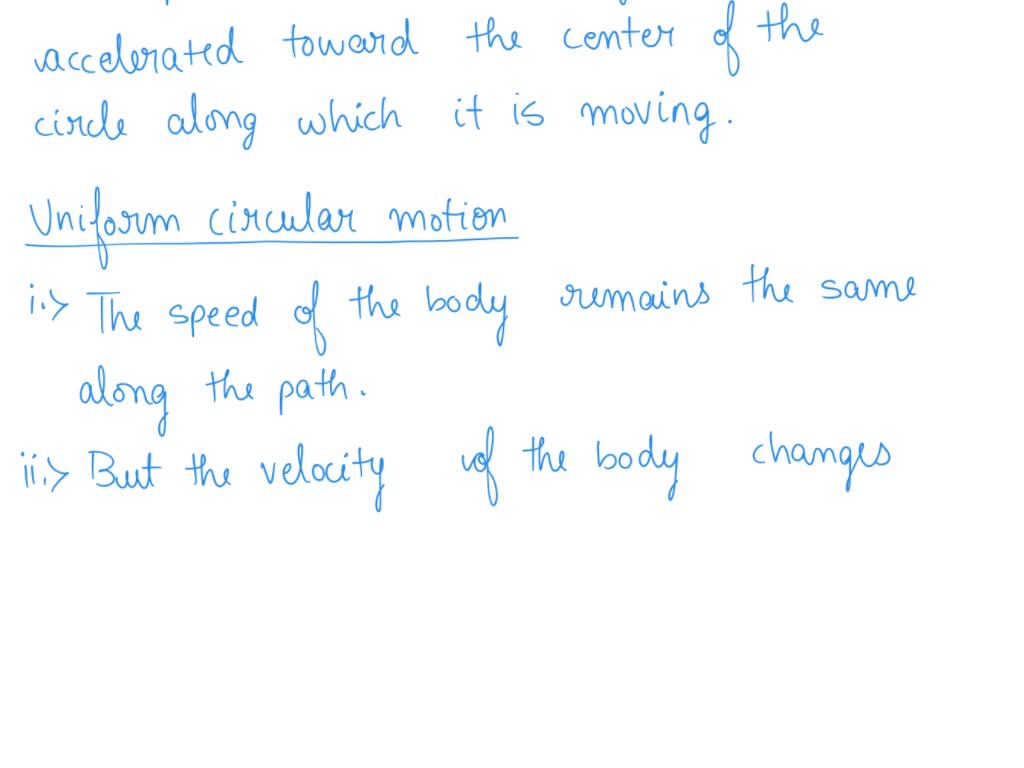 accelerated toward the center of the
circle along which it is moving.
Uniform circular motion
i.> The speed of the body remains the same
along the path.
ii.> But the velocity of the body changes